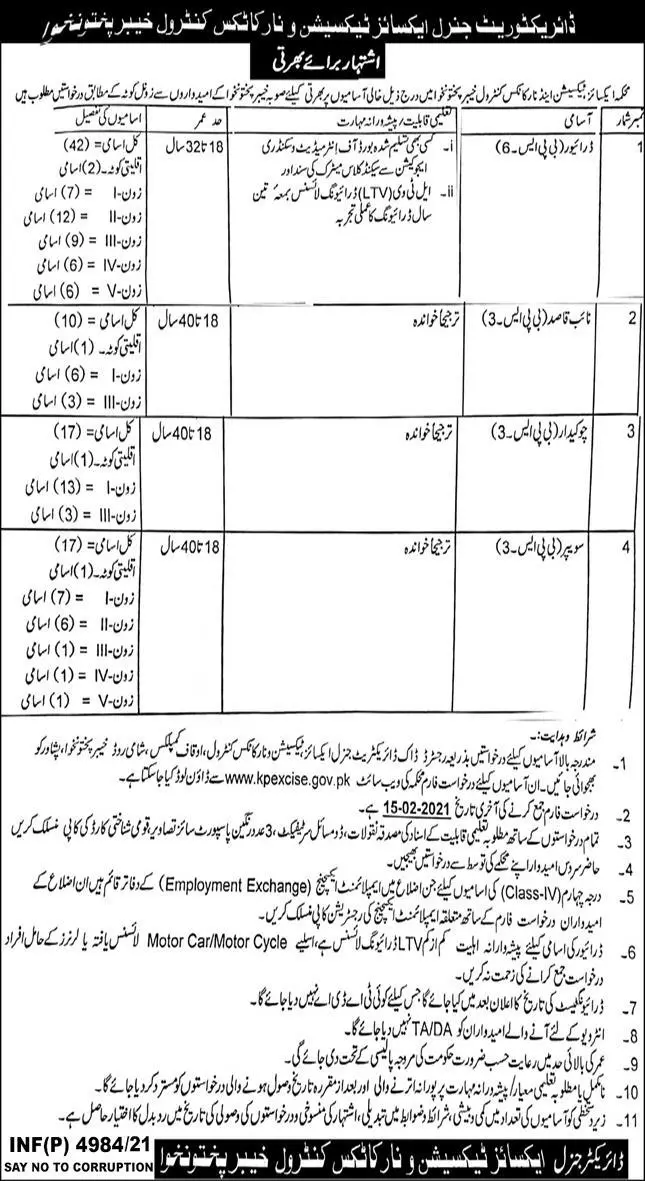 ڈائریکٹوریٹ جنرل ایکسائز ٹیکسیشن و نارکاٹکس کنٹرول خیبر پختونخوا
اشتہار برائے بھرتی
محکمہ ایکسائز، ٹیکسیشن اینڈ نارکاٹکس کنٹرول خیبر پختونخوا میں درج ذیل خالی آسامیوں پر بھرتی کیلئے صوبہ خیبر پختونخوا کے امیدواروں سے زونل کوٹہ کے مطابق درخواستیں مطلوب ہیں
نمبر شمار آسامی تعلیمی قابلیت / پیشہ ورانہ مہارت حد عمر اسامیوں کی تفصیل
1 ڈرائیور (بی پی ایس۔6) i۔ کسی بھی تسلیم شدہ بورڈ آف انٹرمیڈیٹ و سکنڈری 18 تا 32 سال کل اسامی = (42)
ایجوکیشن سے سیکنڈ کلاس میٹرک کی سند اور اقلیتی کوٹہ۔ (2) اسامی
ii۔ ایل ٹی وی (LTV) ڈرائیونگ لائسنس بمعہ تین زون-I = (7) اسامی
سال ڈرائیونگ کا عملی تجربہ زون-II = (12) اسامی
زون-III = (9) اسامی
زون-IV = (6) اسامی
زون-V = (6) اسامی
2 نائب قاصد (بی پی ایس۔3) ترجیحاً خواندہ 18 تا 40 سال کل اسامی = (10)
اقلیتی کوٹہ۔ (1) اسامی
زون-I = (6) اسامی
زون-III = (3) اسامی
3 چوکیدار (بی پی ایس۔3) ترجیحاً خواندہ 18 تا 40 سال کل اسامی = (17)
اقلیتی کوٹہ۔ (1) اسامی
زون-I = (13) اسامی
زون-III = (3) اسامی
4 سویپر (بی پی ایس۔3) ترجیحاً خواندہ 18 تا 40 سال کل اسامی = (17)
اقلیتی کوٹہ۔ (1) اسامی
زون-I = (7) اسامی
زون-II = (6) اسامی
زون-III = (1) اسامی
زون-IV = (1) اسامی
زون-V = (1) اسامی
شرائط و ہدایت:۔
1۔ مندرجہ بالا آسامیوں کیلئے درخواستیں بذریعہ رجسٹرڈ ڈاک ڈائریکٹریٹ جنرل ایکسائز، ٹیکسیشن و نارکاٹکس کنٹرول، اوقاف کمپلکس، شامی روڈ خیبر پختونخوا، پشاور کو
بھجوائی جائیں۔ ان آسامیوں کیلئے درخواست فارم محکمہ کی ویب سائٹ www.kpexcise.gov.pk سے ڈاؤن لوڈ کیا جاسکتا ہے۔
2۔ درخواست فارم جمع کرنے کی آخری تاریخ 15-02-2021 ہے۔
3۔ تمام درخواستوں کے ساتھ مطلوبہ تعلیمی قابلیت کے اسناد کی مصدقہ نقولات، ڈومسائل سرٹیفکیٹ، 3 عدد رنگین پاسپورٹ سائز تصاویر، قومی شناختی کارڈ کی کاپی منسلک کریں
4۔ حاضر سروس امیدوار اپنے محکمے کی توسط سے درخواستیں بھیجیں۔
5۔ درجہ چہارم (Class-IV) کی اسامیوں کیلئے جن اضلاع میں ایمپلائمنٹ ایکسچینج (Employment Exchange) کے دفاتر قائم ہیں ان اضلاع کے
امیدواران درخواست فارم کے ساتھ متعلقہ ایمپلائمنٹ ایکسچینج کی رجسٹریشن کاپی منسلک کریں۔
6۔ ڈرائیور کی اسامی کیلئے پیشہ ورانہ اہلیت کم از کم LTV ڈرائیونگ لائسنس ہے، اسلیے Motor Car/Motor Cycle لائسنس یافتہ یا لرنرز کے حامل افراد
درخواست جمع کرانے کی زحمت نہ کریں۔
7۔ ڈرائیونگ ٹیسٹ کی تاریخ کا اعلان بعد میں کیا جائے گا جس کیلئے کوئی ٹی اے ڈی اے نہیں دیا جائے گا۔
8۔ انٹرویو کے لئے آنے والے امیدواران کو TA/DA نہیں دیا جائے گا۔
9۔ عمر کی بالائی حد میں رعایت حسب ضرورت حکومت کی مروجہ پالیسی کے تحت دی جائے گی۔
10۔ نامکمل یا مطلوبہ تعلیمی معیار / پیشہ ورانہ مہارت پر پورا نہ اترنے والی اور بعد از مقررہ تاریخ وصول ہونے والی درخواستوں کو مسترد کردیا جائے گا۔
11۔ زیر دستخطی کو آسامیوں کی تعداد میں کمی و بیشی، شرائط و ضوابط میں تبدیلی، اشتہار کی منسوخی و درخواستوں کی وصولی کی تاریخ میں ردبدل کا اختیار حاصل ہے۔
INF(P) 4984/21
SAY NO TO CORRUPTION
ڈائریکٹر جنرل ایکسائز ٹیکسیشن و نارکاٹکس کنٹرول خیبر پختونخوا